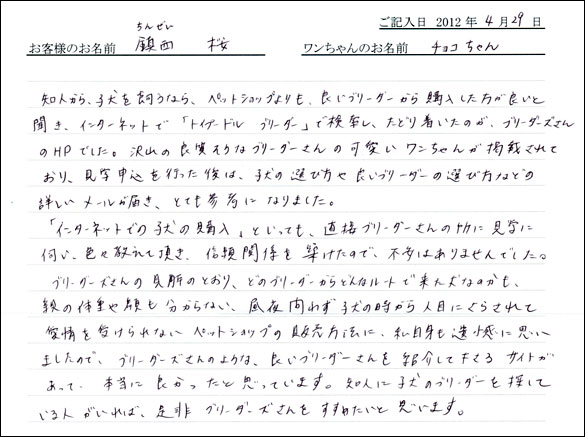 ご記入日 2012年4月29日
ちんぜい
お客様のお名前 鎮西 桜 ワンちゃんのお名前 チョコちゃん
知人から、子犬を飼うなら、ペットショップよりも、良いブリーダーから購入した方が良いと
聞き、インターネットで「トイプードル ブリーダー」で検索し、たどり着いたのが、ブリーダーズさん
のHPでした。沢山の良質そうなブリーダーさんの可愛いワンちゃんが掲載されて
おり、見学申込を行った後は、子犬の選び方や良いブリーダーの選び方などの
詳しいメールが届き、とても参考になりました。
「インターネットでの子犬の購入」といっても、直接ブリーダーさんの所に見学に
伺い、色々教えて頂き、信頼関係を築けたので、不安はありませんでした。
ブリーダーズさんの見解のとおり、どのブリーダーからどんなルートで来た犬なのかも、
親の体重や顔も分からない、昼夜問わず子犬の時から人目にさらされて
愛情を受けられないペットショップの販売方法に、私自身も遺憾に思い
ましたので、ブリーダーズさんのような、良いブリーダーさんを紹介して下さるサイトが
あって、本当に良かったと思っています。知人に子犬のブリーダーを探して
いる人がいれば、是非ブリーダーズさんをすすめたいと思います。